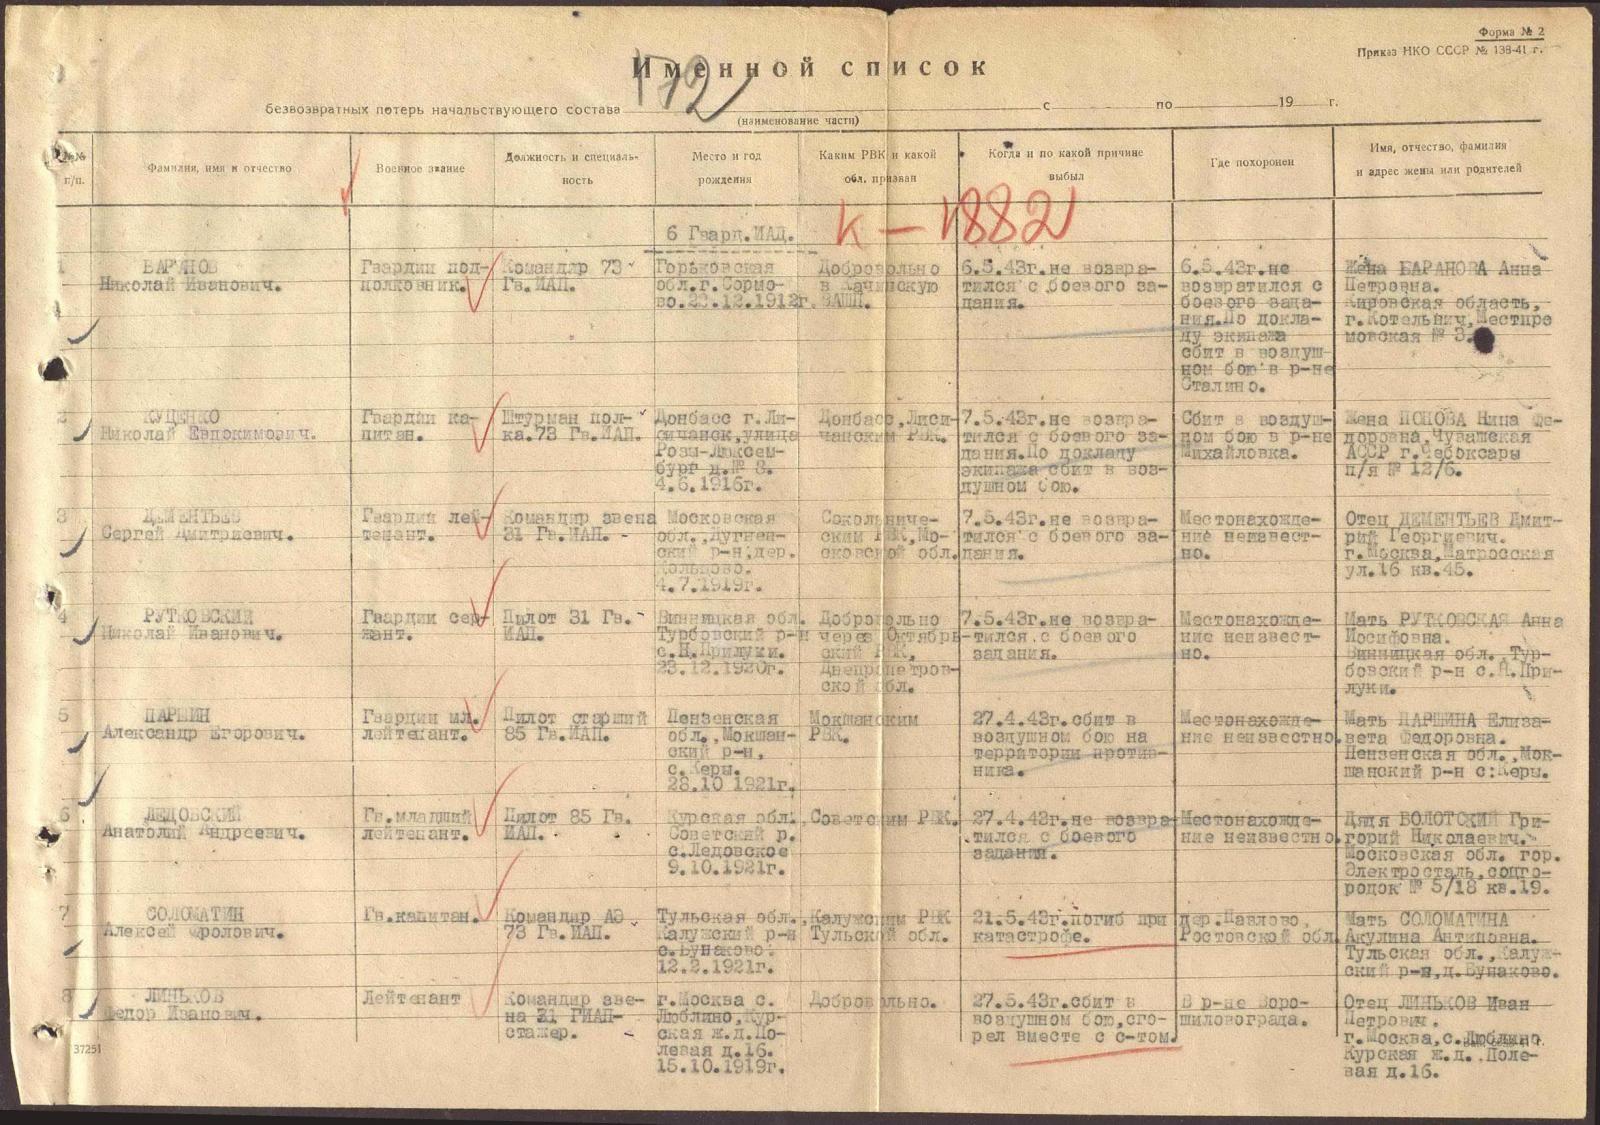 Форма № 2
Приказ НКО СССР № 138-41 г.
Именной список
172
безвозвратных потерь начальствующего состава с по 19 г.
(наименование части)
№№ п/п.
Фамилия, имя и отчество
Военное звание
Должность и специаль-
ность
Место и год
рождения
Каким РВК и какой
обл. призван
Когда и по какой причине
выбыл
Где похоронен
Имя, отчество, фамилия
и адрес жены или родителей
К-1882
6 Гвард.ИАД.
1
БАРАНОВ
Николай Иванович.
Гвардии под-
полковник.
Командир 73
Гв.ИАП.
Горьковская
обл.г.Сормо-
во.23.12.1912г.
Добровольно
в Качинскую
ВАШП.
6.5.43г.не возвра-
тился с боевого за-
дания.
6.5.43г.не
возвратился с
боевого зада-
ния.По докла-
ду экипажа
сбит в воздуш-
ном бою в р-не
Сталино.
Жена БАРАНОВА Анна
Петровна.
Кировская область,
г.Котельнич,Местпро
мовская № 3.
2
КУЦЕНКО
Николай Евдокимович.
Гвардии ка-
питан.
Штурман пол-
ка.73 Гв.ИАП.
Донбасс г.Ли-
сичанск,улица
Розы-Люксем-
бург д.№ 8.
4.6.1916г.
Донбасс,Лиси-
чанским РВК.
7.5.43г.не возвра-
тился с боевого за-
дания.По докладу
экипажа сбит в воз-
душном бою.
Сбит в воздуш-
ном бою в р-не
Михайловка.
Жена ПОПОВА Нина Фе-
доровна,Чувашская
АССР г.Чебоксары
п/я № 12/6.
3
ДЕМЕНТЬЕВ
Сергей Дмитриевич.
Гвардии лей-
тенант.
Командир звена
31 Гв.ИАП.
Московская
обл.,Дугнен-
ский р-н;дер.
Кольцово.
4.7.1919г.
Сокольниче-
ским РВК,Мо-
сковской обл.
7.5.43г.не возвра-
тился с боевого за-
дания.
Местонахожде-
ние неизвест-
но.
Отец ДЕМЕНТЬЕВ Дмит-
рий Георгиевич.
г.Москва,Матросская
ул.16 кв.45.
4
РУТКОВСКИЙ
Николай Иванович.
Гвардии сер-
жант.
Пилот 31 Гв.
ИАП.
Винницкая обл.
Турбовский р-н
с.Н.Прилуки.
23.12.1920г.
Добровольно
через Октябрь-
ский РВК,
Днепропетров-
ской обл.
7.5.43г.не возвра-
тился с боевого
задания.
Местонахожде-
ние неизвест-
но.
Мать РУТКОВСКАЯ Анна
Иосифовна.
Винницкая обл.,Тур-
бовский р-н с.Н.При-
луки.
5
ПАРШИН
Александр Егорович.
Гвардии мл.
лейтенант.
Пилот старший
85 Гв.ИАП.
Пензенская
обл.,Мокшан-
ский р-н,
с.Керы.
28.10 1921г.
Мокшанским
РВК.
27.4.43г.сбит в
воздушном бою на
территории против-
ника.
Местонахожде-
ние неизвестно.
Мать ПАРШИНА Елиза-
вета Федоровна.
Пензенская обл.,Мок-
шанский р-н с:Керы.
6
ЛЕДОВСКИЙ
Анатолий Андреевич.
Гв.младший
лейтенант.
Пилот 85 Гв.
ИАП.
Курская обл.,
Советский р.
с.Ледовское
9.10.1921г.
Советским РВК.
27.4.43г.не возвра-
тился с боевого
задания.
Местонахожде-
ние неизвестно.
Дядя БОЛОТСКИЙ Гри-
горий Николаевич.
Московская обл. гор.
Электросталь,соцго-
родок № 5/18 кв.19.
7
СОЛОМАТИН
Алексей Фролович.
Гв.капитан.
Командир АЭ
73 Гв.ИАП.
Тульская обл.,
Калужский р-н
с.Бунаково.
12.2.1921г.
Калужским РВК
Тульской обл.
21.5.43г.погиб при
катастрофе.
дер.Павлово,
Ростовской обл.
Мать СОЛОМАТИНА
Акулина Антиповна.
Тульская обл.,Калуж-
ский р-н,д.Бунаково.
8
ЛИНЬКОВ
Федор Иванович.
Лейтенант
Командир зве-
на 31 ГИАП-
стажер.
г.Москва с.
Люблино,Кур-
ская ж.д.По-
левая д.16.
15.10.1919г.
Добровольно.
27.5.43г.сбит в
воздушном бою,сго-
рел вместе с с-том.
В р-не Воро-
шиловограда.
Отец ЛИНЬКОВ Иван
Петрович.
г.Москва,с.Люблино
Курская ж.д. Поле-
вая д.16.
37251